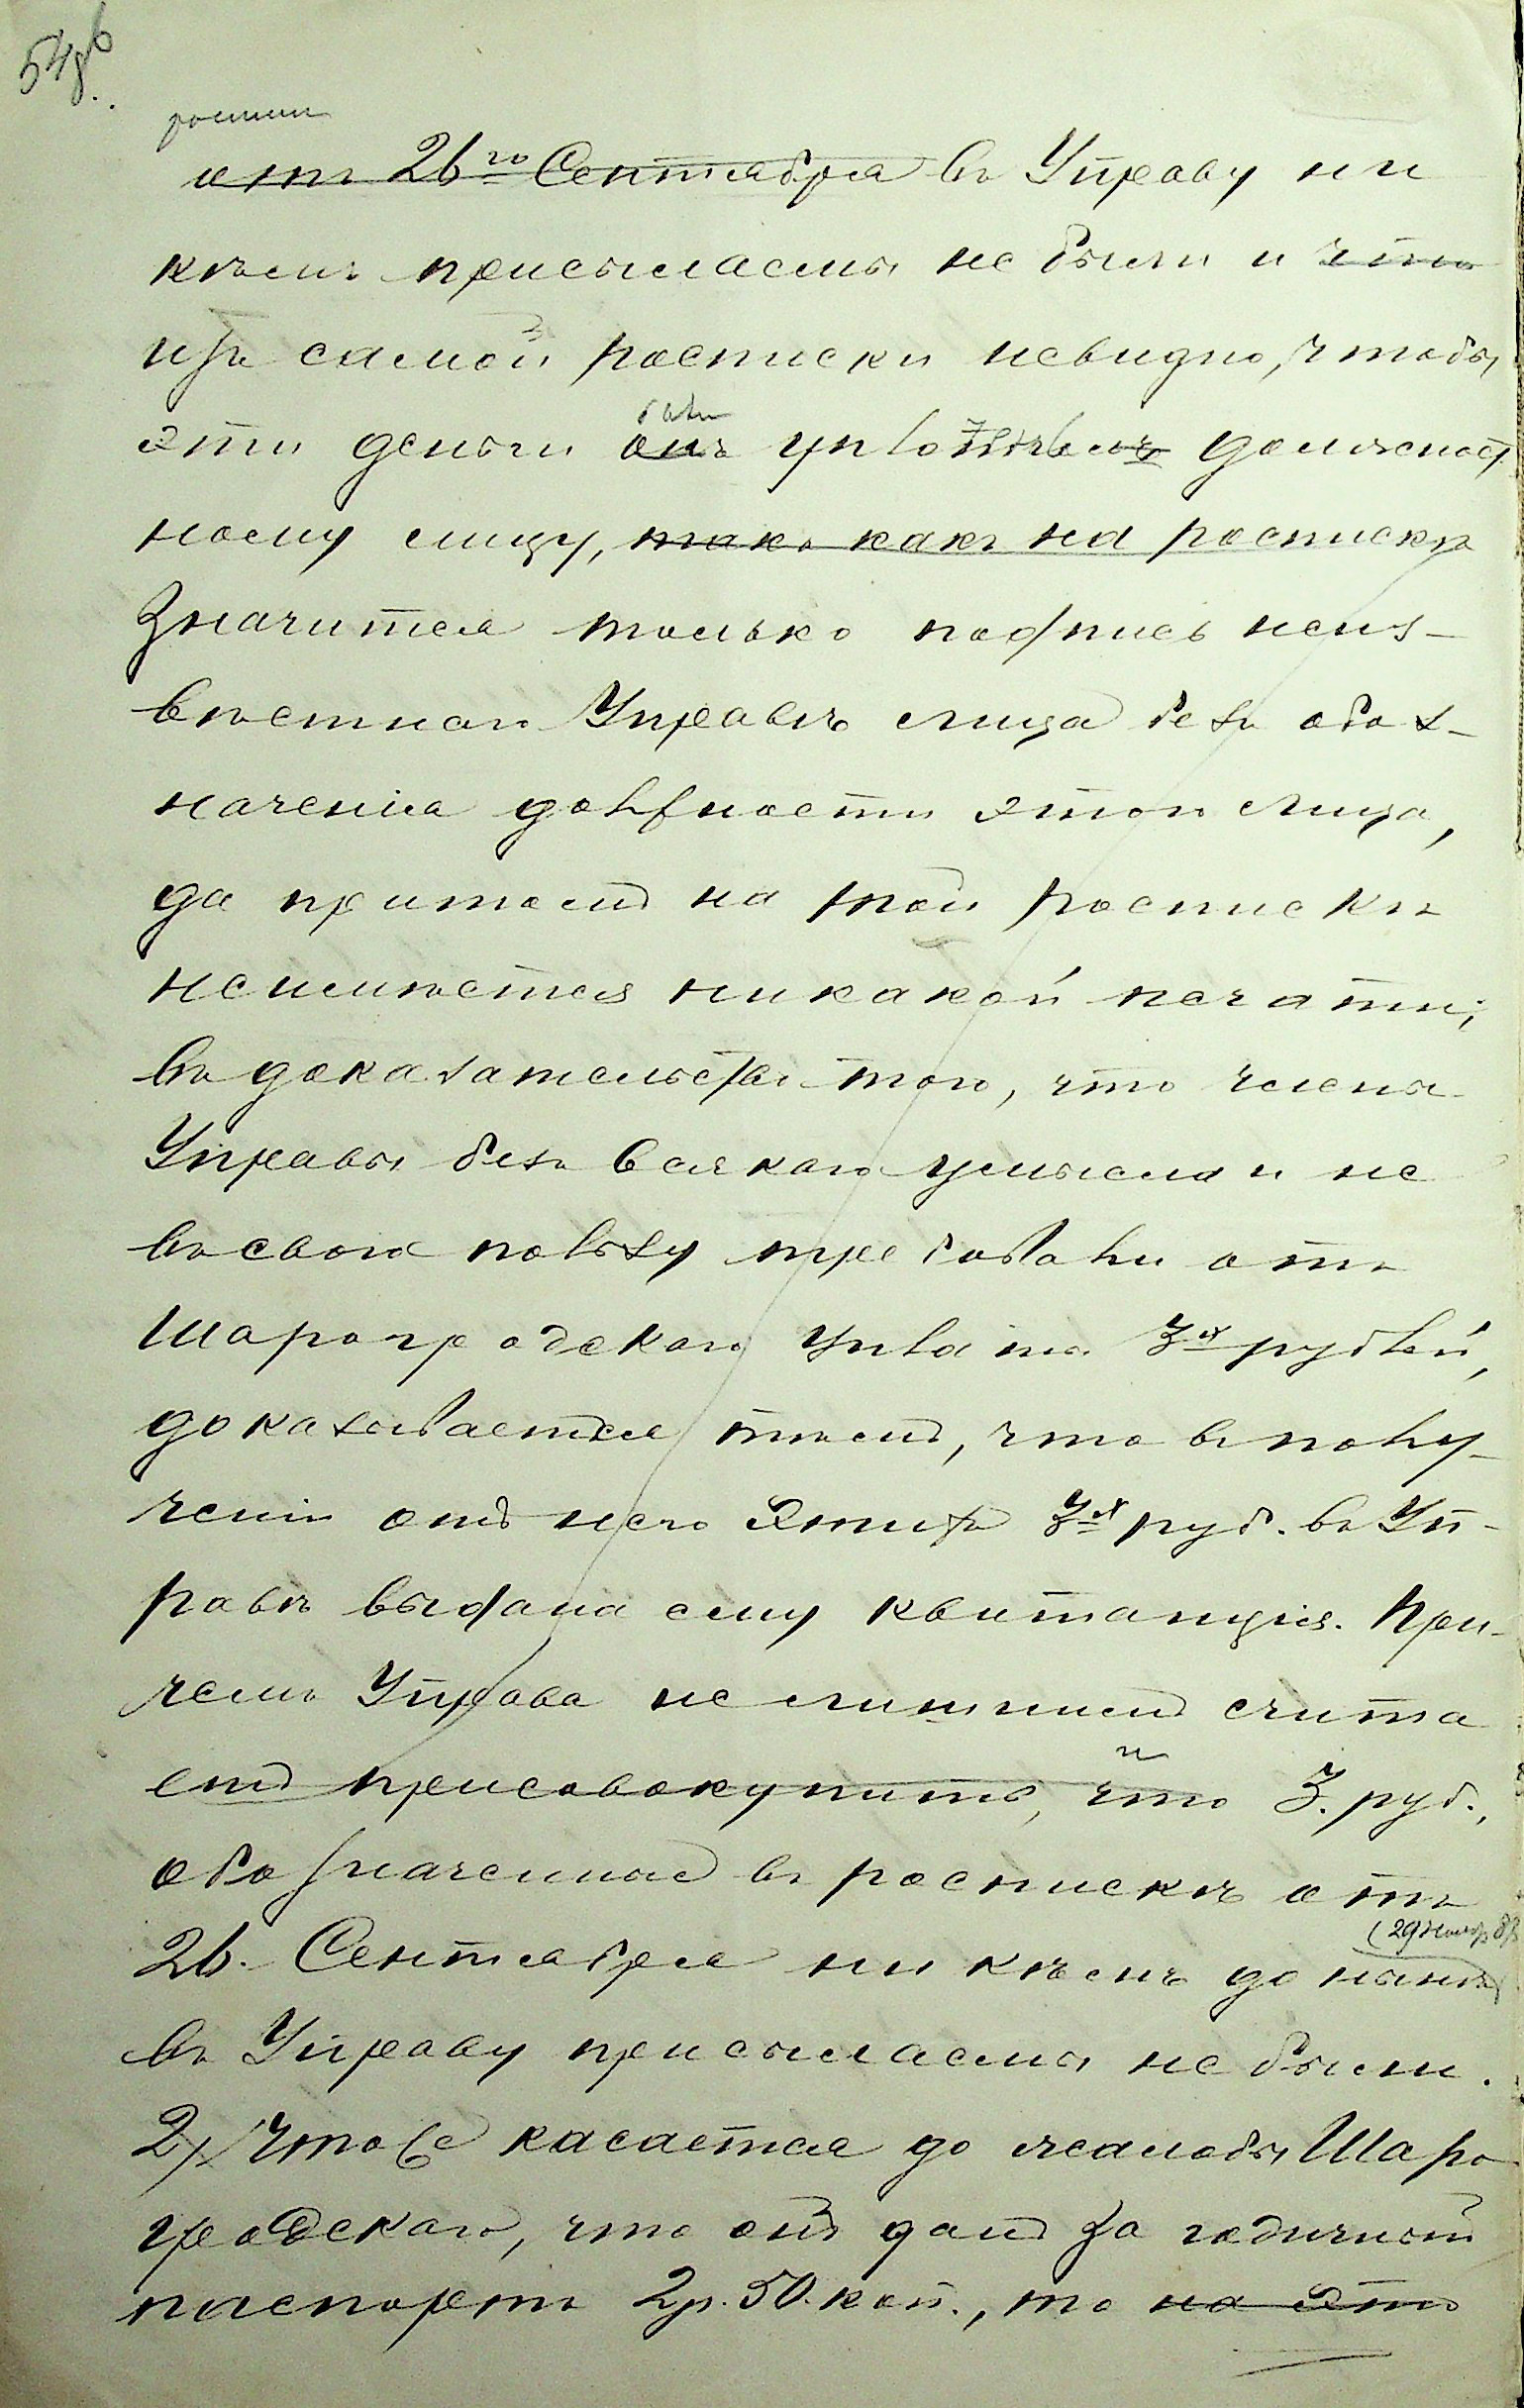 54 об
росписки
отъ 26го Сентября въ Управу ни
кѣмъ присылаемы не были и что
изъ самой росписки невидно, чтобы
были
эти деньги онъ уплотилъ должност
ному лицу, такъ какъ на роспискѣ
значится только подпись неиз-
вѣстнаго Управѣ лица безъ обоз-
наченія должности этого лица,
да притомъ на той роспискѣ
неимѣется никакой печати;
въ доказательство того, что члены
Управы безъ всякаго умысла и не
въ свою пользу требовали отъ
Шарогродскаго уплата 3х рублей,
доказывается тѣмъ, что въ полу-
ченіи отъ него этихъ 3х руб. въ Уп-
равѣ выдана ему квитанція. При-
чемъ Управа не лишнимъ счита
етъ присовокупить, что 3. руб.,
и
обозначенные въ роспискѣ отъ
26. Сентября ни кѣмъ до нынѣ
въ Управу присылаемы не были.
2/ Что же касается до жалобы Шаро
гродскаго, что онъ далъ за годичный
паспортъ 2р. 50. коп., то на это